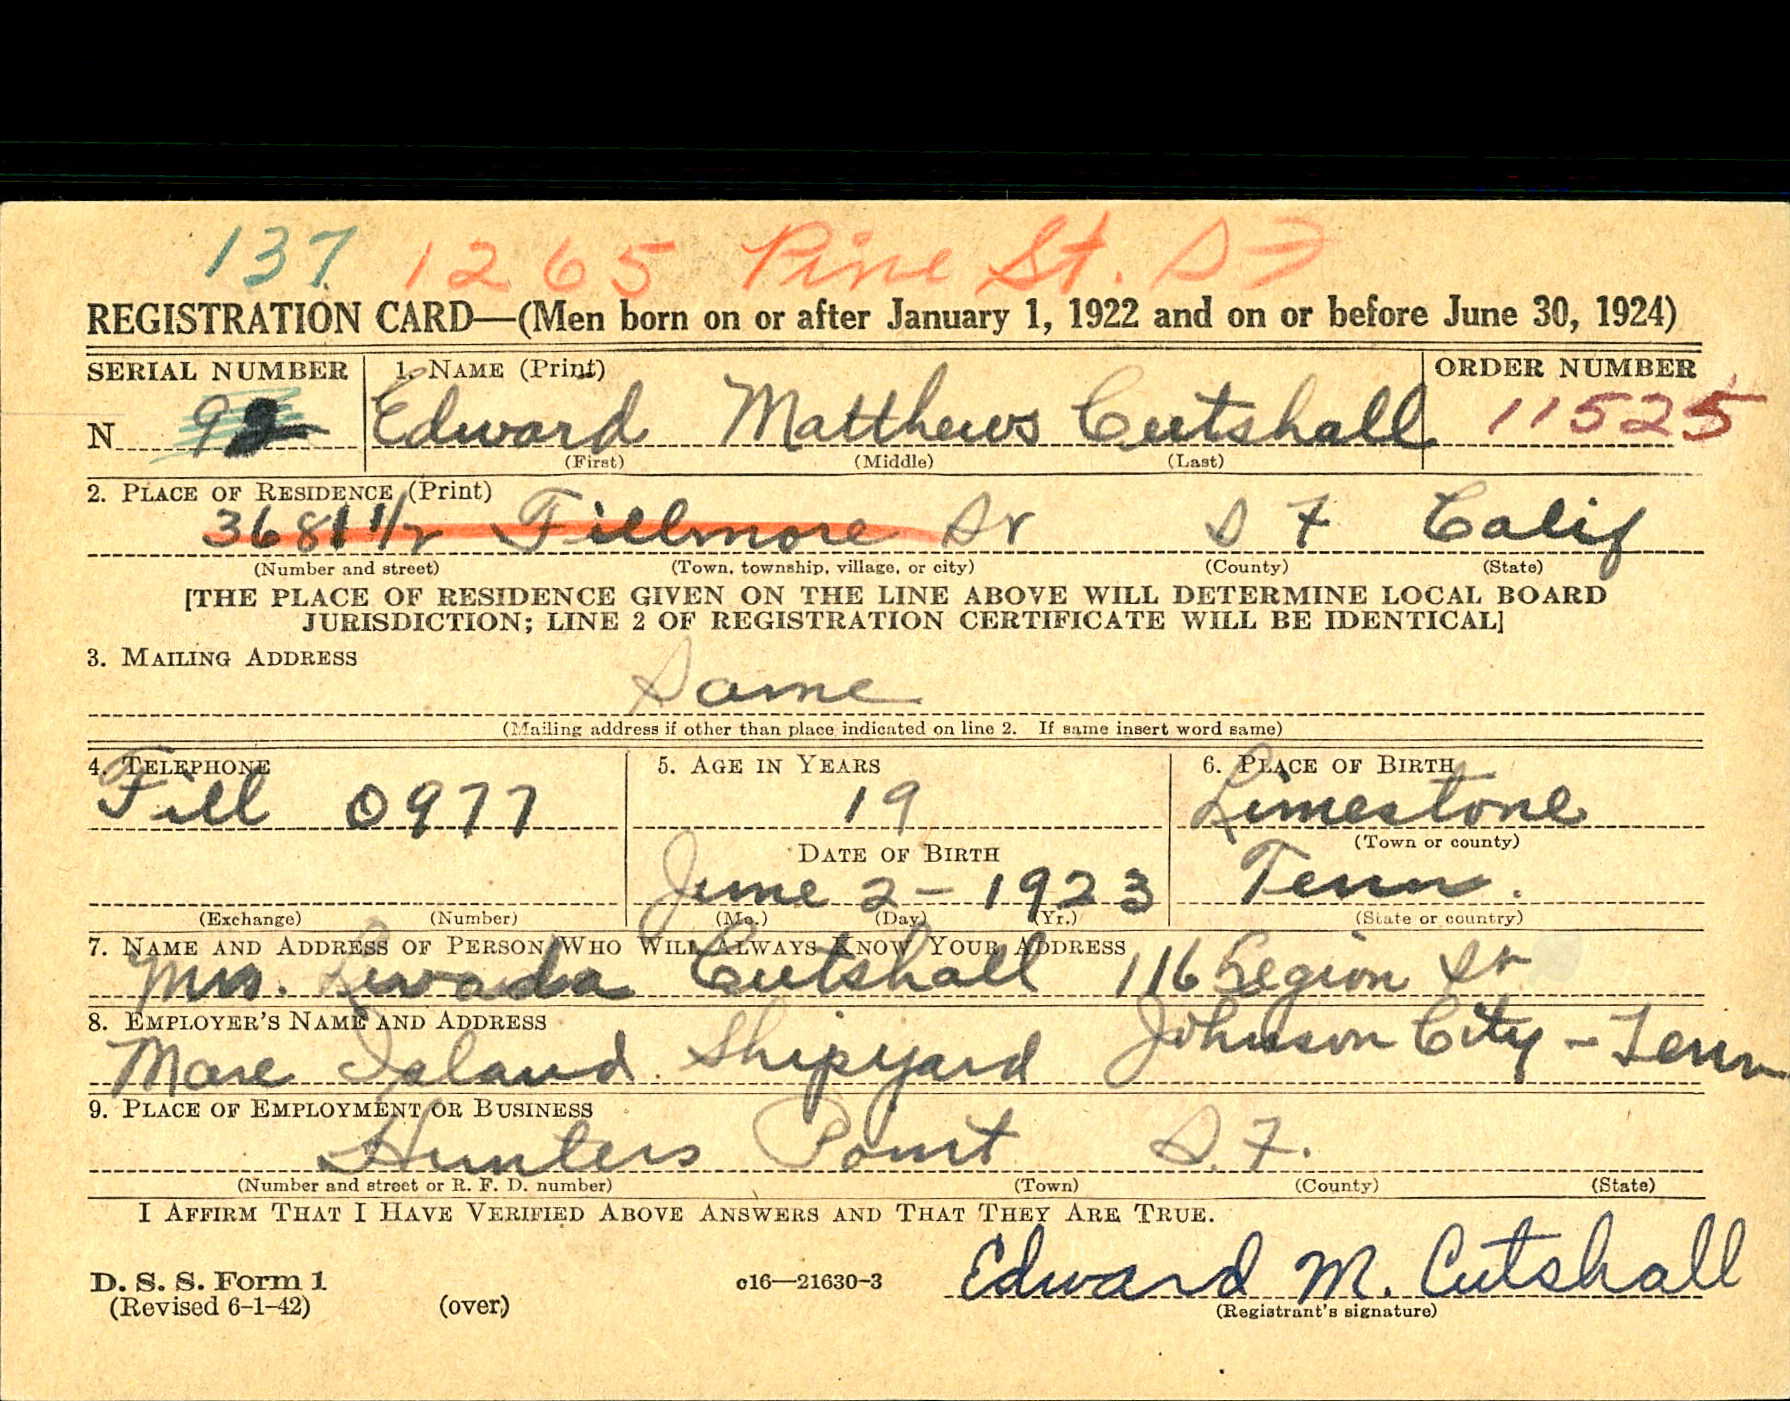 137 1265 Pine St. S F
REGISTRATION CARD—(Men born on or after January 1, 1922 and on or before June 30, 1924)
SERIAL NUMBER 1. NAME (Print) ORDER NUMBER
N Edward Matthews Cutshall 11525
(First) (Middle) (Last)
2. PLACE OF RESIDENCE (Print)
3681 1/2 Fillmore St S F Calif
(Number and street) (Town, township, village, or city) (County) (State)
[THE PLACE OF RESIDENCE GIVEN ON THE LINE ABOVE WILL DETERMINE LOCAL BOARD
JURISDICTION; LINE 2 OF REGISTRATION CERTIFICATE WILL BE IDENTICAL]
3. MAILING ADDRESS
Same
(Mailing address if other than place indicated on line 2. If same insert word same)
4. TELEPHONE 5. AGE IN YEARS 6. PLACE OF BIRTH
Fill 0977 19 Limestone
(Town or county)
DATE OF BIRTH
June 2 - 1923 Tenn.
(Exchange) (Number) (Mo.) (Day) (Yr.) (State or country)
7. NAME AND ADDRESS OF PERSON WHO WILL ALWAYS KNOW YOUR ADDRESS
Mrs. Cutshall 116 Legion St
8. EMPLOYER'S NAME AND ADDRESS
Mare Island Shipyard Johnson City - Tenn
9. PLACE OF EMPLOYMENT OR BUSINESS
Hunters Point S.F.
(Number and street or R. F. D. number) (Town) (County) (State)
I AFFIRM THAT I HAVE VERIFIED ABOVE ANSWERS AND THAT THEY ARE TRUE.
Edward M. Cutshall
D. S. S. Form 1 c16—21630-3
(Revised 6-1-42) (over) (Registrant's signature)